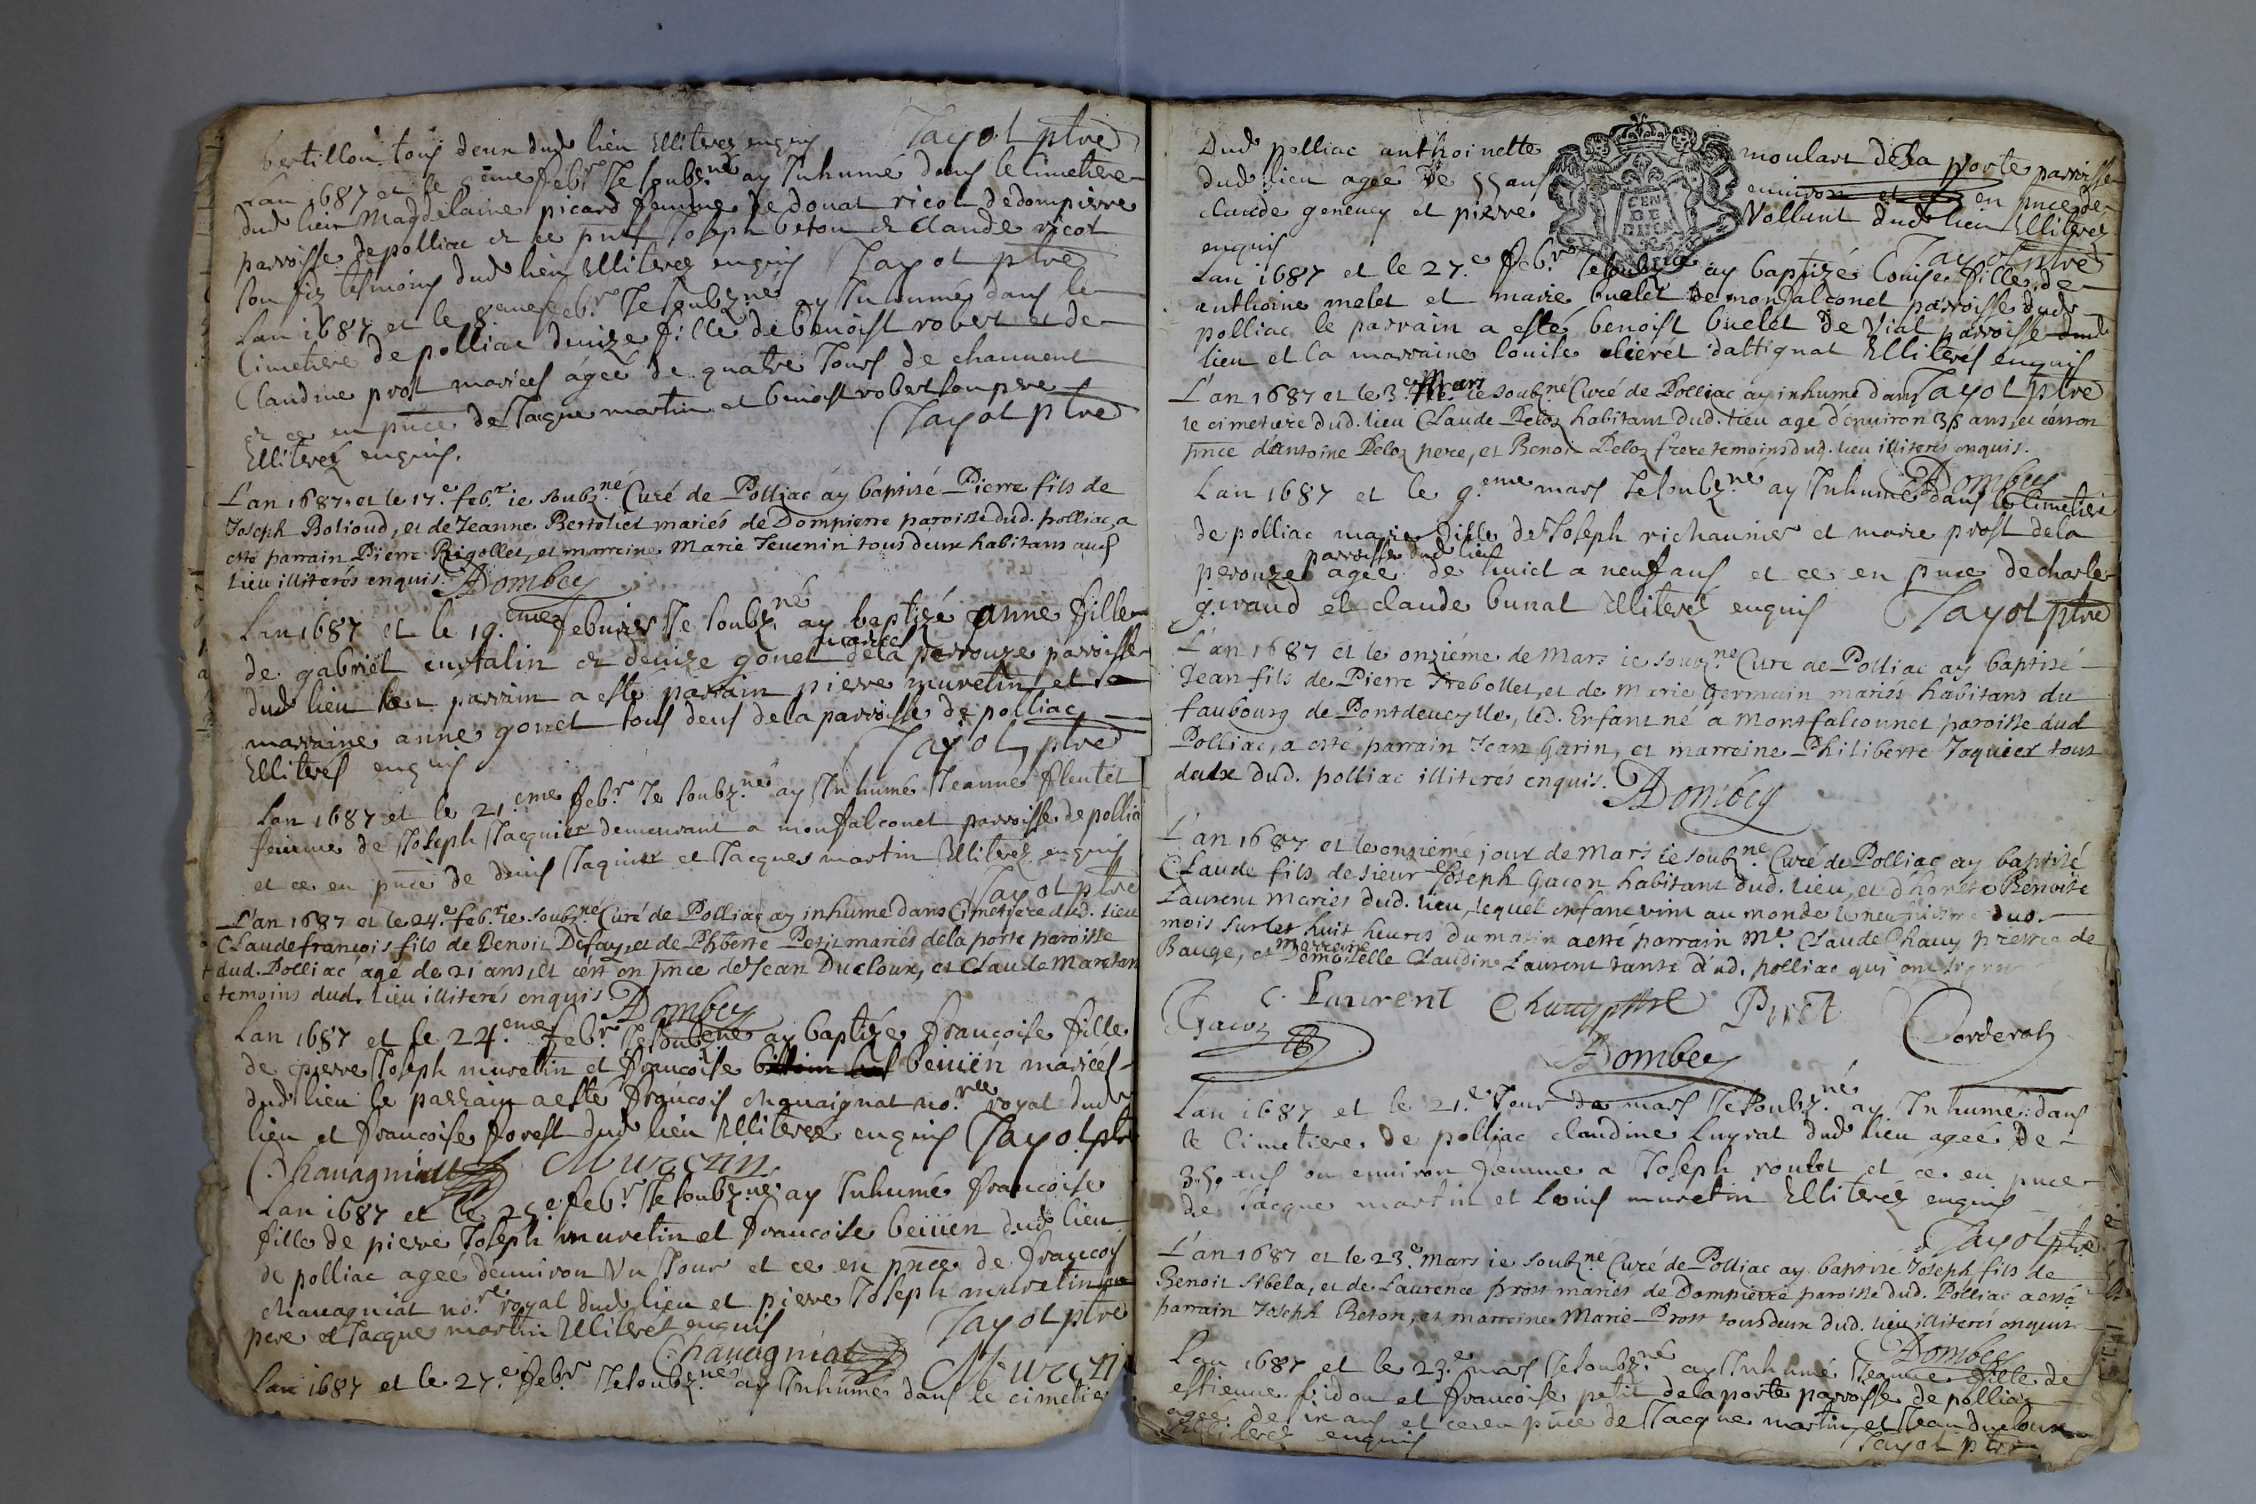 bertillon tous deux dud lieu Elliterez enquis Tayot ptre
Lan 1687 et le 6eme febr. Je soubz.né ay Inhumé dans le Cimetiere
dud lieu Magdelaine picard femme de donat ricol de dompierre
parroisse de polliac et ce pnts Joseph beton et Claude ricol
son fiz tesmoins dud lieu Elliterez enquis Tayot ptre
Lan 1687 et le 8eme feb.r Je soubz.né ay Inhumé dans le
Cimetiere de polliac denize fille de benoist robert et de
Claudine prost mariees ágeé de quatre Jours de chauuent
et ce en pnce de Jaque martin et benoist robert son pere
Elliterez enquis. Tayot ptre
L'an 1687. et le 17.e feb.r ie soubz.né Curé de Polliac ay baptisé Pierre fils de
Joseph Bolioud, et de Jeanne Bertoliet mariés de Dompierre paroisse dud. polliac, a
esté parrain Pierre Rigollet, et marreine Marie Teuenin tous deux habitans aud
lieu illiterés enquis. Dombey
Lan 1687 et le 19.eme febuier Je soubz.né ay baptizé anne fille
de gabriel curtalin et denize gonet mariees dela perrouze parroisse
dud lieu son parrain a esté parrain pierre muretin et sa
marraine anne gonet tous deus de la parroisse de polliac
Elliterés enquis Tayot ptre
Lan 1687 et le 21.eme feb.r Je soubz.né ay Inhumé Jeanne fleutet
femme de Joseph Jacquier demeurant a monfalconet parroisse de pollia
et ce en pnce de denis Jaquier et Jacques martin Elliterez enquis
Tayot ptre
L'an 1687 et le 24.e feb.r ie soubz.né Curé de Polliac ay inhumé dans Cimetiere dud. lieu
Claude francois fils de Benoit Defay, et de Phberte Petit mariés dela porte paroisse
dud. Polliac agé de 21 ans, et c'est en pnce de Jean Ducloux, et Claude Maretan
temoins dud. lieu illiterés enquis Dombey
Lan 1687 et le 24.eme feb.r Je soubzné ay baptize francoise fille
de pierre Joseph muretin et francoise beuiën mariéés
dud lieu le parrain a esté francois chauaignat no.re royal dud
lieu et francoise forest dud lieu Elliterez enquis Tayot ptr
Chauagniat Muretin
Lan 1687 et le 25.e feb.r Je soubz.né ay Inhumé francoise
fille de pierre Joseph muretin et francoise beiiien dud lieu
de polliac agee denuiron Vn Jour et ce en pnce de francois
chauagniat no.re royal dud lieu et pierre Joseph muretin
pere et Jacques martin Elliteret enquis Tayot ptre
Chauagniat Muretin
Lan 1687 et le 27.e feb.r Je soubz.né ay Inhumé dans le cimetie
Dud polliac anthoinette moulart de la porte parroisse
dud lieu ageé de 55 ans enuiron en pnce de
claude geneuey et pierre Vollant dud lieu Elliterez
enquis Tayot ptre
GEN DE
Lan 1687 et le 27.e feb.r Je soubzné ay baptizé Louise fille de
anthoine melet et marie buelet de monfalconet parroisse dud
polliac le parrain a esté benoist buelet de Vial parroisse dud
lieu et la marraine louise clierét dattignat Elliterés enquis
Tayot ptre
L'an 1687 et le 3.e Mars ie soubz.né Curé de Polliac ay inhumé dans
le cimetiere dud. lieu Claude Peloz habitant dud. lieu agé d'enuiron 35 ans, et c'est on
pnce d'Antoine Peloz pere, et Benoit Peloz frere temoins dud. lieu illiterés enquis.
Dombey
Lan 1687 et le 9.eme mars Je soubz.né ay Inhumé dans le Cimetiere
de polliac marie fille de Joseph richaunier et marie prost dela
perouze parroisse dud lieu ageé de huict a neuf ans et ce en pnce de charle
giraud et claude bunat Elliterez enquis Tayot ptre
L'an 1687 et le onziéme de Mars ie soubz.né Curé de Polliac ay baptisé
Jean fils de Pierre Trebollet, et de Marie Germain mariés habitans du
faubourg de Pontdeueylle, led. Enfant né a Montfalconnet paroisse dud
Polliac, a esté parrain Jean Garin, et marreine Philiberte Joquier tous
deux dud. polliac illiteres enquis. Dombey
L'an 1687 et le onziéme jour de Mars ie soubz.né Curé de Polliac ay baptisé
Claude fils de sieur Joseph Gacon habitant dud. lieu, et d'honeste Benoiste
Laurent mariés dud. lieu, lequel enfant vint au monde le neufuieme dud.
mois sur les huit heures du matin a esté parrain M.e Claude Chauy prestre de
Baugé, et marreine Demoiselle Claudine Laurent tante d'ud. polliac qui ont signé
Gacon C. Laurent Chauy ptre Piret Corderat
Dombey
Lan 1687 et le 21.e Jour de mars Je soubz.né ay Inhumé dans
le Cimetiere de polliac claudine Luyrat dud lieu ageé de
35. ans ou enuiron femme a Joseph roulet et ce en pnce
de Jacque martin et Louis muretin Elliterez enquis
Tayot ptre
L'an 1687 et le 23.e Mars ie soubz.né Curé de Polliac ay baptisé Joseph fils de
Benoit Sibela, et de Laurence Prost mariés de Dompierre paroisse dud. Polliac a esté
parrain Joseph Beton, et marreine Marie Prost tous deux dud. lieu illiterés enquis
Dombey
Lan 1687 et le 23.e mars Je soubz.né ay Inhumé Jeanne fille de
estienne fidon et francoise petit dela porte parroisse de polliac
ageé de ix ans et ce en pnce de Jacque martin et Jean ducloux
Elliterez enquis Tayot ptre